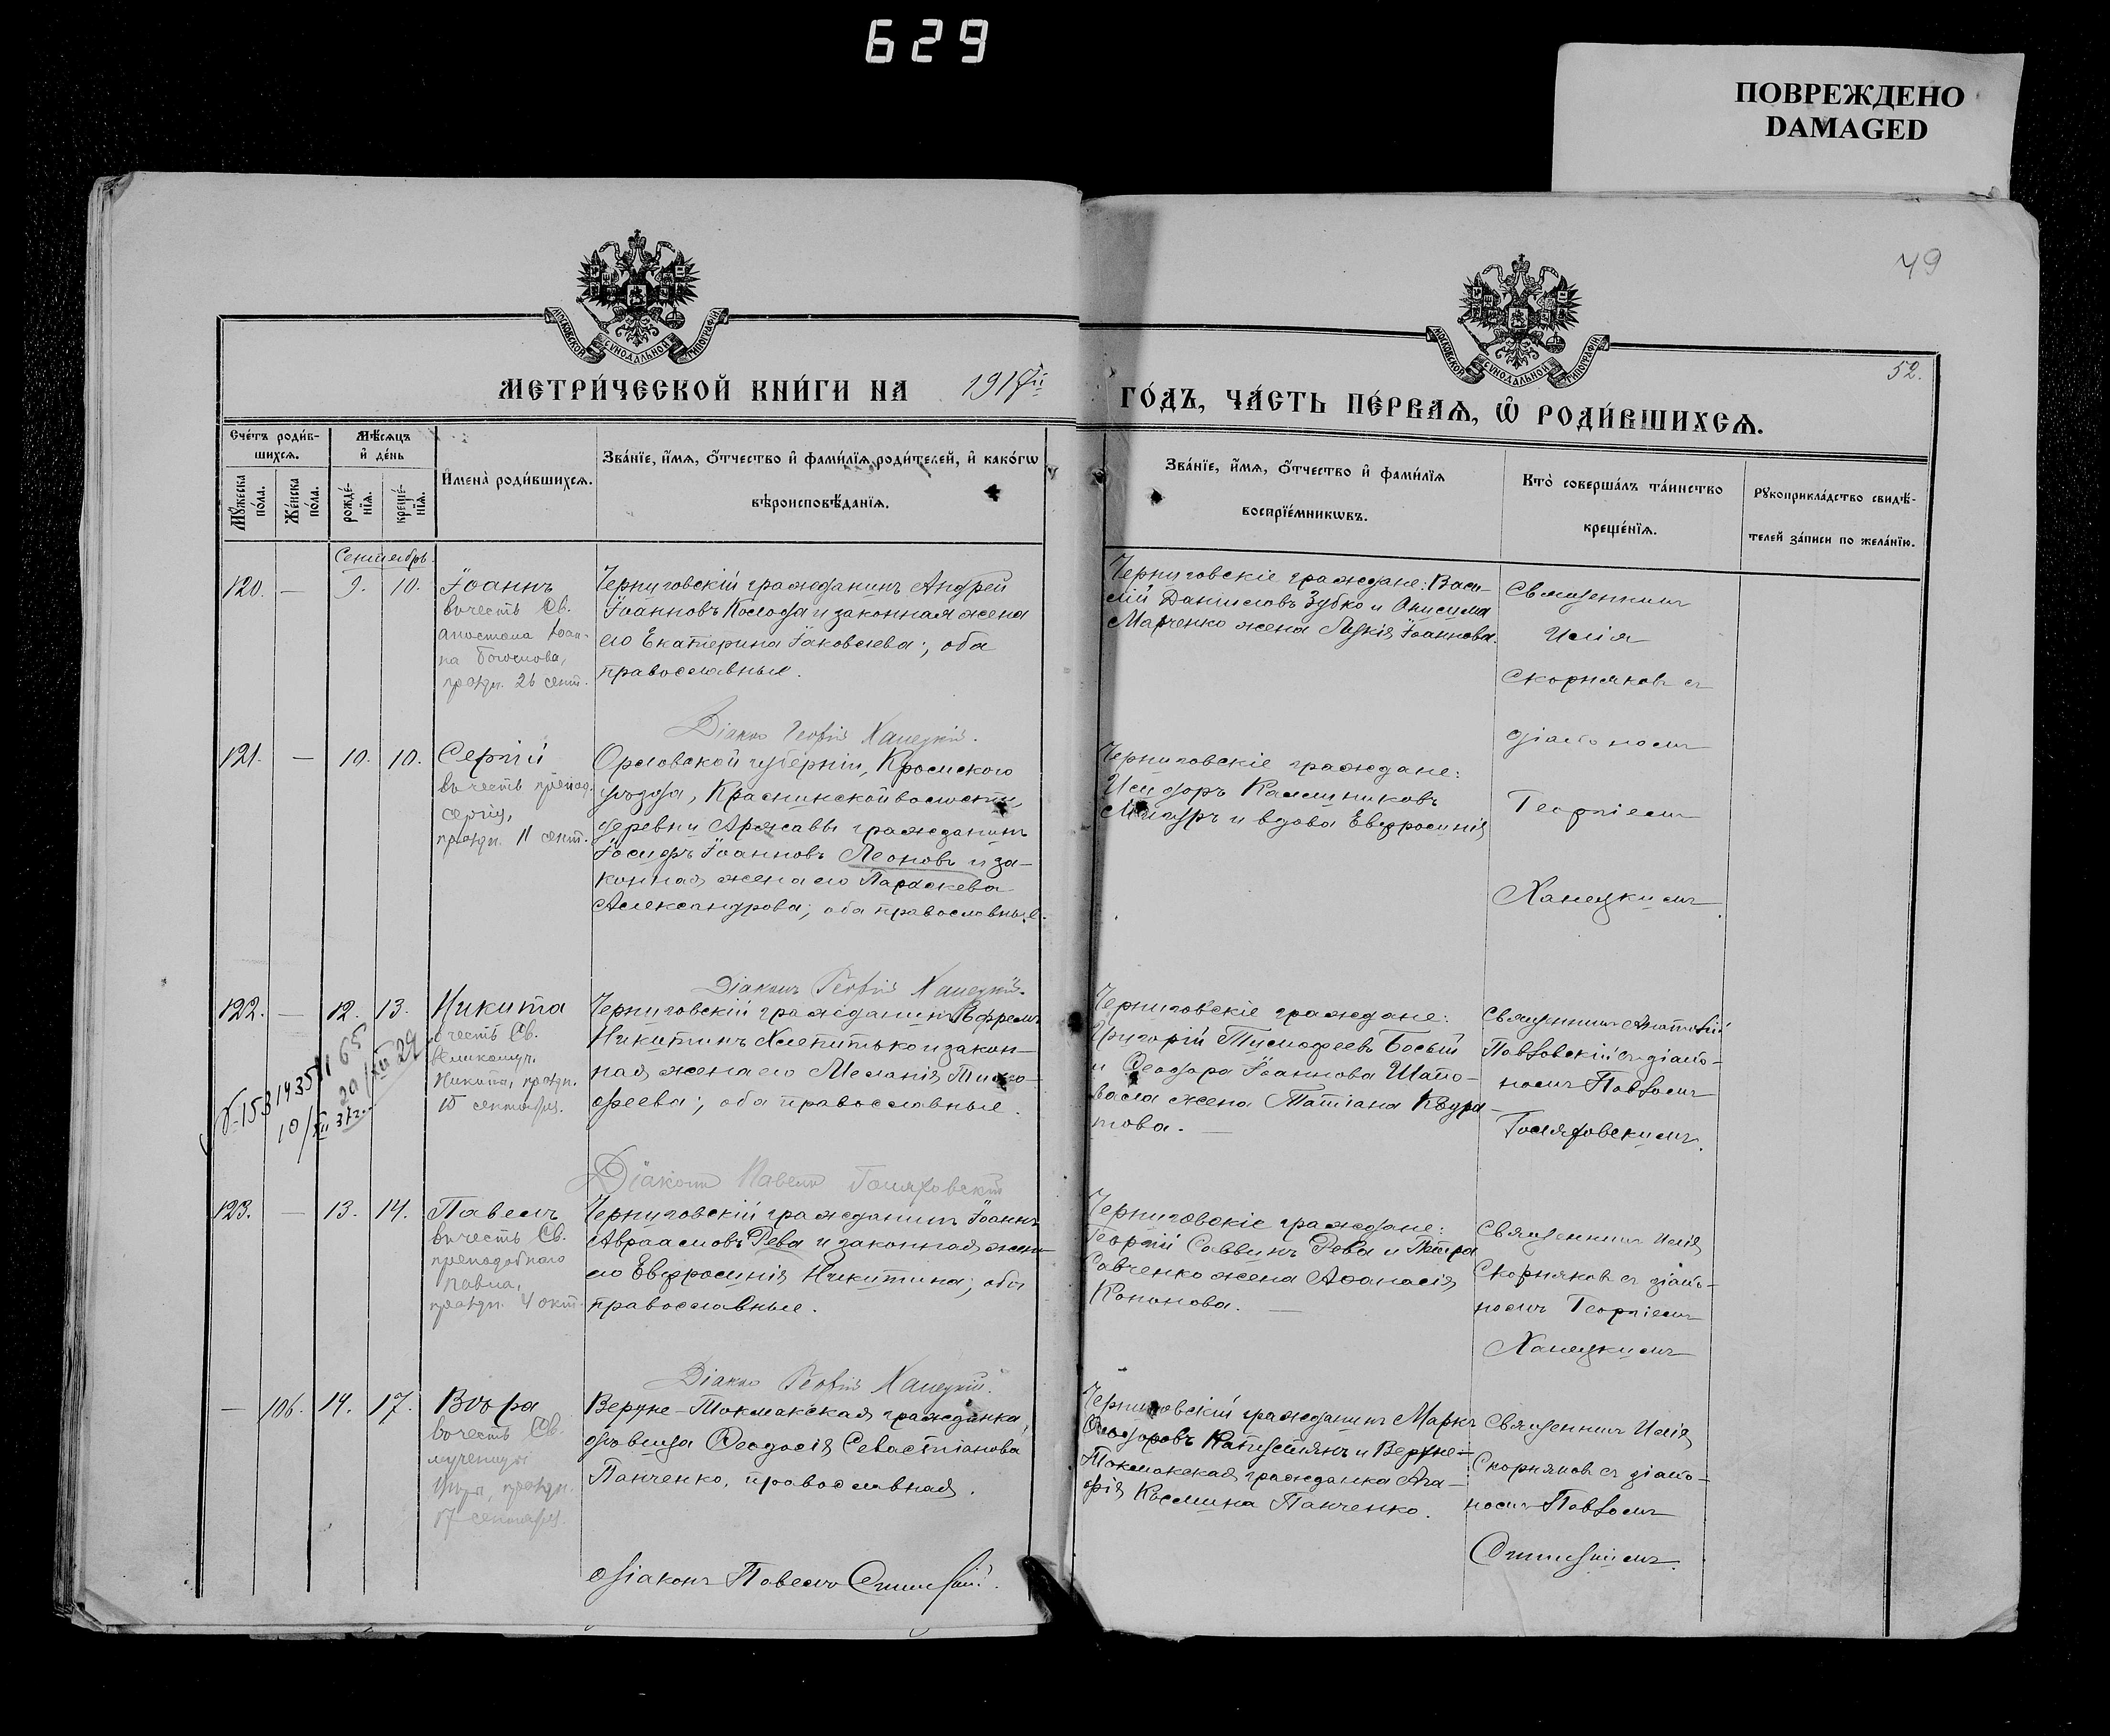 629
ПОВРЕЖДЕНО
DAMAGED
49
52.
МОСКОВСКОЙ СѴНОДАЛЬНОЙ ТИПОГРАФІИ
МОСКОВСКОЙ СѴНОДАЛЬНОЙ ТИПОГРАФІИ
МЕТРИ́ЧЕСКОЙ КНИ́ГИ НА 1917й
ГО́ДЪ, ЧА́СТЬ ПЕ́РВАѦ, Ѽ РОДИ́ВШИХСѦ.
Сче́тъ роди́в-
шихсѧ.
Мꙋ́жеска по́ла.
Же́нска по́ла.
Мѣ́сѧцъ
и҆ де́нь
рожде́-
нїѧ.
креще́-
нїѧ.
И҆мена̀ роди́вшихсѧ.
Зва́нїе, и҆́мѧ, ѻ҆́тчество и҆ фами́лїѧ роди́телей, и҆ како́гѡ
вѣроисповѣ́данїѧ.
Зва́нїе, и҆́мѧ, ѻ҆́тчество и҆ фами́лїѧ
воспрїе́мникѡвъ.
Кто̀ соверша́лъ та́инство
креще́нїѧ.
Рꙋкоприкла́дство свидѣ́-
телей за́писи по жела́нїю.
Сентябрь.
120. — 9. 10. Іоаннъ
в честь Св.
апостола Іоан-
на Богослова,
праздн. 26 сент.
Черниговскій гражданинъ Андрей
Іоанновъ Колода и законная жена
его Екатерина Іаковлева; оба
православные.
Діаконъ Георгій Ханецкій.
Черниговскіе граждане: Васи-
лій Даніиловъ Зубко и Онисима
Марченко жена Лукія Іоаннова.
Священникъ
Илія
Скорняковъ съ
діако номъ
Георгіемъ
Ханецкимъ
121. — 10. 10. Сергій
в честь препод.
Сергія,
праздн. 11 сент.
Орловской губерніи, Кромского
уѣзда, Краснинской волости,
деревни Аржавы гражданинъ
Іосифъ Іоанновъ Леоновъ и за-
конная жена его Параскева
Александрова; оба православные.
Діаконъ Георгій Ханецкій.
Черниговскіе граждане:
Исидоръ Каллиниковъ
и вдова Евфросинія
122. — 12. 13. Никита
в честь Св.
Великомуч.
Никиты, праздн.
15 сентября.
Черниговскій гражданинъ Ефремъ
Никитинъ Хлепитько и закон-
ная жена его Меланія Тимо-
феева; оба православные.
Діаконъ Павелъ Голяховскій
Черниговскіе граждане:
Григорій Тимофеевъ Босый
и Феодора Іоаннова Шапо-
вала жена Татіана Кодра-
това. —
Священникъ Анатолій
Павловскій съ діако-
номъ Павломъ
Голяховскимъ.
123. — 13. 14. Павелъ
в честь Св.
преподобнаго
Павла,
праздн. 4 окт.
Черниговскій гражданинъ Іоаннъ
Авраамовъ Рева и законная жена
его Евфросинія Никитина; оба
православные.
Діаконъ Георгій Ханецкій.
Черниговскіе граждане:
Георгій Саввинъ Рева и Петра
Савченко жена Афанасія
Кононова. —
Священникъ Илія
Скорняковъ съ діако-
номъ Георгіемъ
Ханецкимъ
— 106. 14. 17. Вѣра
в честь Св.
мученицы
Вѣры, праздн.
17 сентября.
Верхне-Токмакская гражданка,
дѣвица Феодосія Севастіанова
Панченко, православная.
Діаконъ Павелъ
Черниговскій гражданинъ Маркъ
Феодоровъ и Верхне-
Токмакская гражданка Ага-
фія Космина Панченко.
Священникъ Илія
Скорняковъ съ діако-
номъ Павломъ